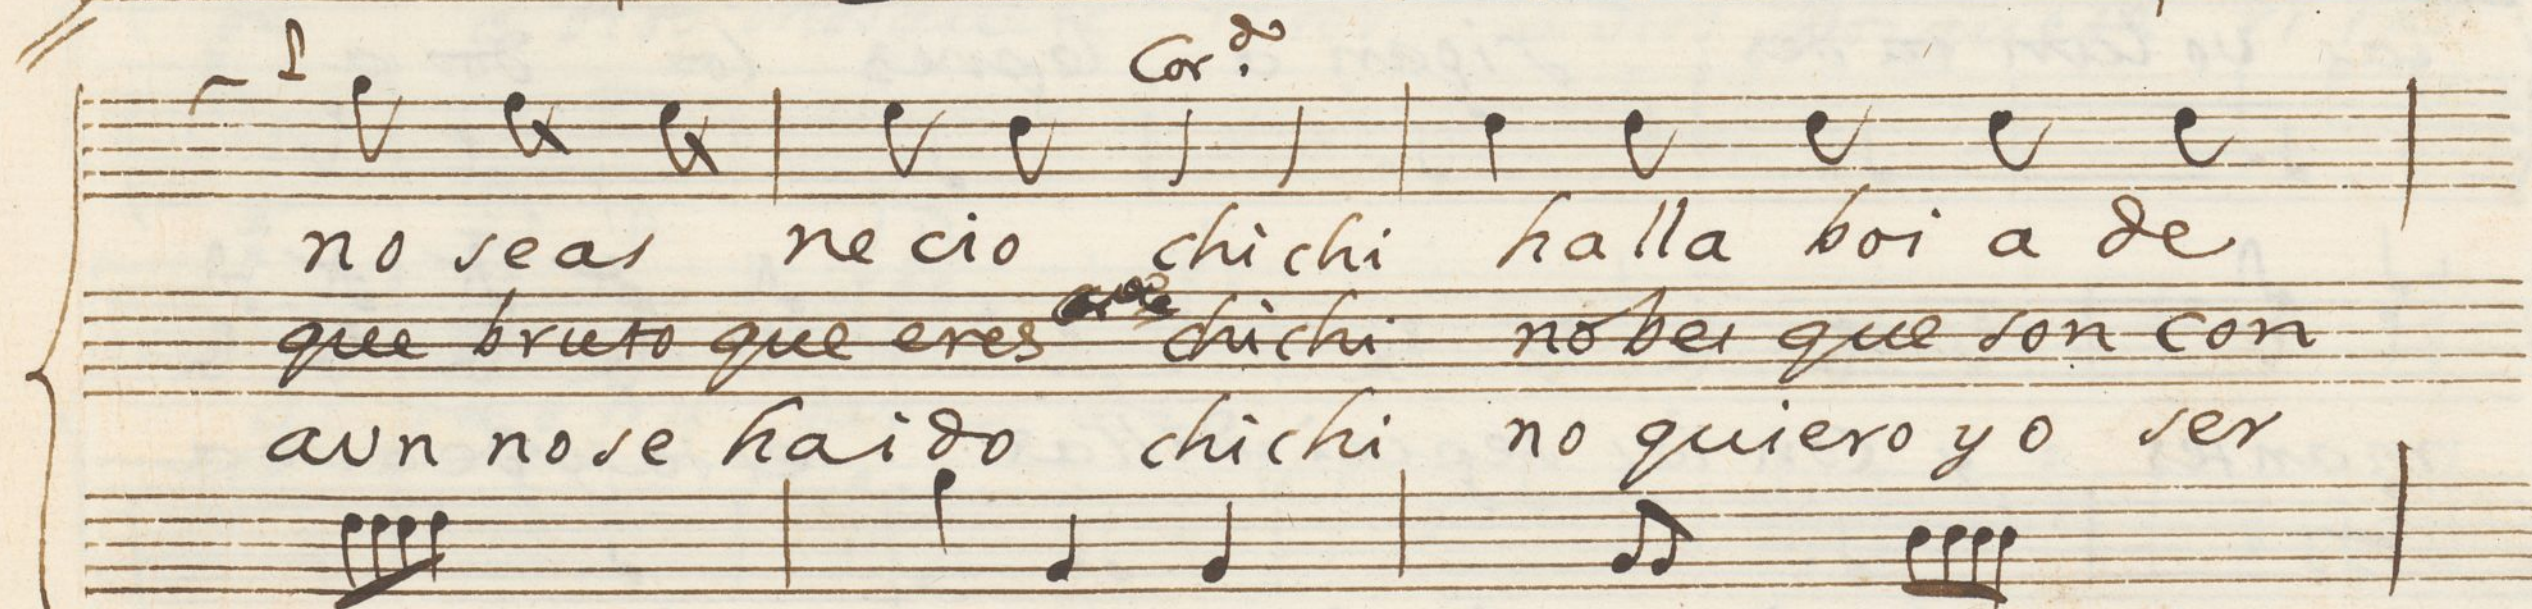 Cor.do
no seas necio chichi halla boi a de
que bruto que eres chichi no bes que son con
aun no se ha ido chichi no quiero yo ser